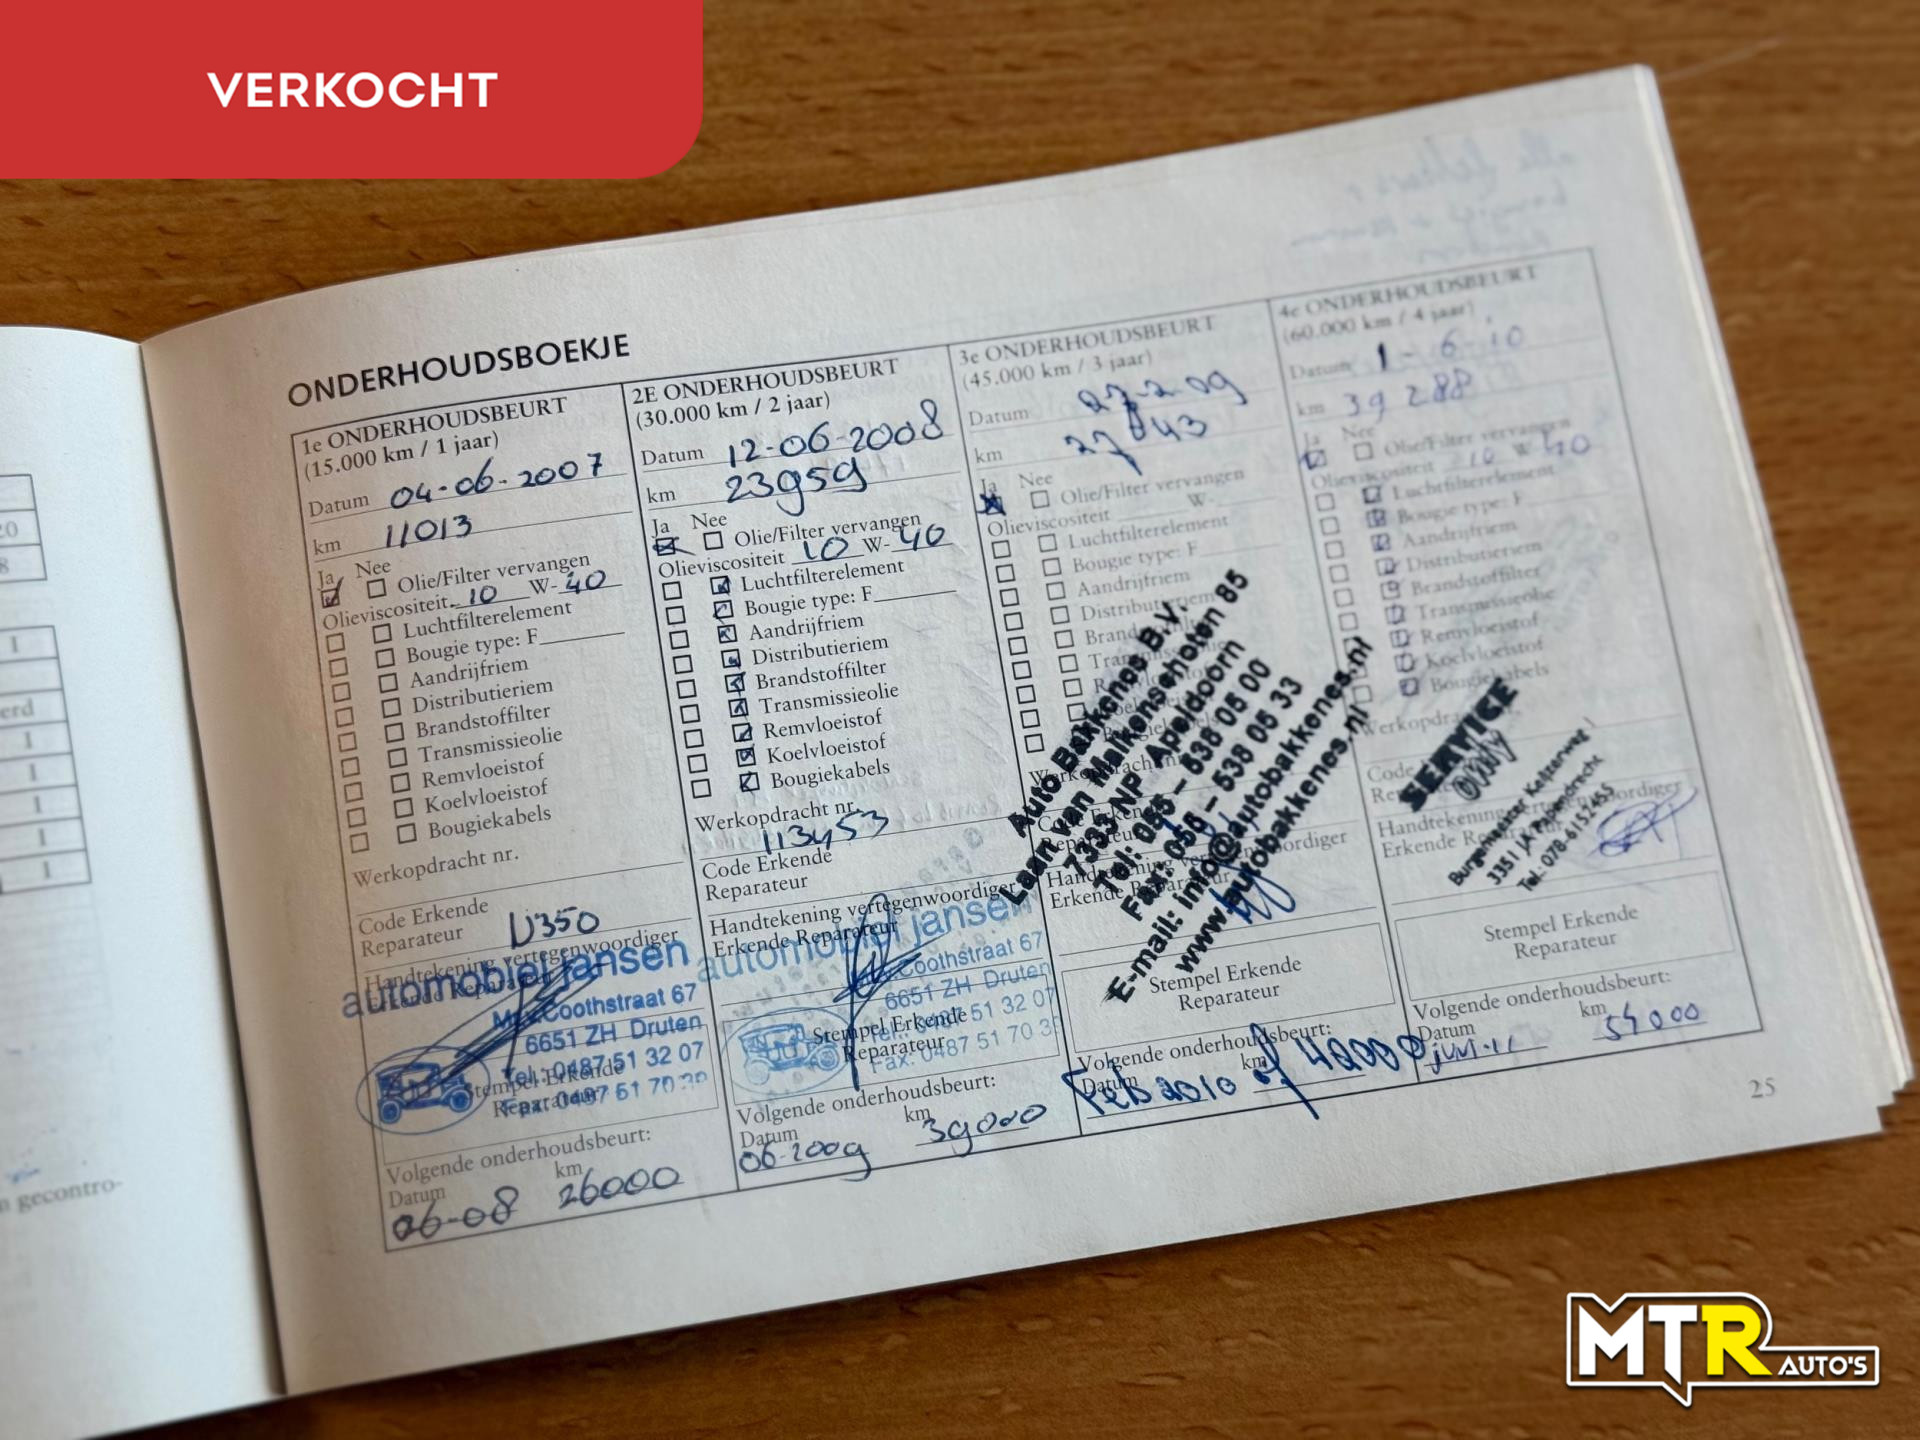 VERKOCHT
ONDERHOUDSBOEKJE
1e ONDERHOUDSBEURT
(15.000 km / 1 jaar)
Datum 04-06-2007
km 11013
Ja Nee
Olie/Filter vervangen
Olieviscositeit 10 W-40
Luchtfilterelement
Bougie type: F
Aandrijfriem
Distributieriem
Brandstoffilter
Transmissieolie
Remvloeistof
Koelvloeistof
Bougiekabels
Werkopdracht nr.
Code Erkende
Reparateur U350
Handtekening vertegenwoordiger
Erkende Reparateur
automobiel jansen
Coothstraat 67
6651 ZH Druten
Tel.: 0487 51 32 07
Stempel Erkende
Reparateur
Fax: 0487 51 70
Volgende onderhoudsbeurt:
Datum km
06-08 26000
2E ONDERHOUDSBEURT
(30.000 km / 2 jaar)
Datum 12-06-2008
km 23959
Ja Nee
Olie/Filter vervangen
Olieviscositeit 10 W-40
Luchtfilterelement
Bougie type: F
Aandrijfriem
Distributieriem
Brandstoffilter
Transmissieolie
Remvloeistof
Koelvloeistof
Bougiekabels
Werkopdracht nr.
113453
Code Erkende
Reparateur
Handtekening vertegenwoordiger
Erkende Reparateur
automobiel jansen
Coothstraat 67
6651 ZH Druten
Stempel Erkende
Tel.: 0487 51 32 07
Reparateur
Fax: 0487 51 70
Volgende onderhoudsbeurt:
Datum km
06-2009 39000
3e ONDERHOUDSBEURT
(45.000 km / 3 jaar)
Datum 27-2-09
km 27843
Ja Nee
Olie/Filter vervangen
Olieviscositeit W-
Luchtfilterelement
Bougie type: F
Aandrijfriem
Auto Bakkenes B.V.
Laan van Malkenschoten 85
7333 NP Apeldoorn
Tel: 055 - 538 05 00
Fax: 055 - 538 05 33
E-mail: info@autobakkenes.nl
www.autobakkenes.nl
Stempel Erkende
Reparateur
Volgende onderhoudsbeurt:
Datum km
Feb 2010 of 42000
4e ONDERHOUDSBEURT
(60.000 km / 4 jaar)
Datum 1-6-10
km 39 288
Ja Nee
Olie/Filter vervangen
Olieviscositeit 10 W 40
Luchtfilterelement
Bougie type: F
Aandrijfriem
Distributieriem
Brandstoffilter
Transmissieolie
Remvloeistof
Koelvloeistof
Bougiekabels
SERVICE
Only
Burgemeester Keizerweg 1
3351 LA Papendrecht
Tel. 078-6152455
Handtekening vertegenwoordiger
Erkende Reparateur
Stempel Erkende
Reparateur
Volgende onderhoudsbeurt:
Datum km
jun-11 54000
25
n gecontro-
MTR AUTO'S